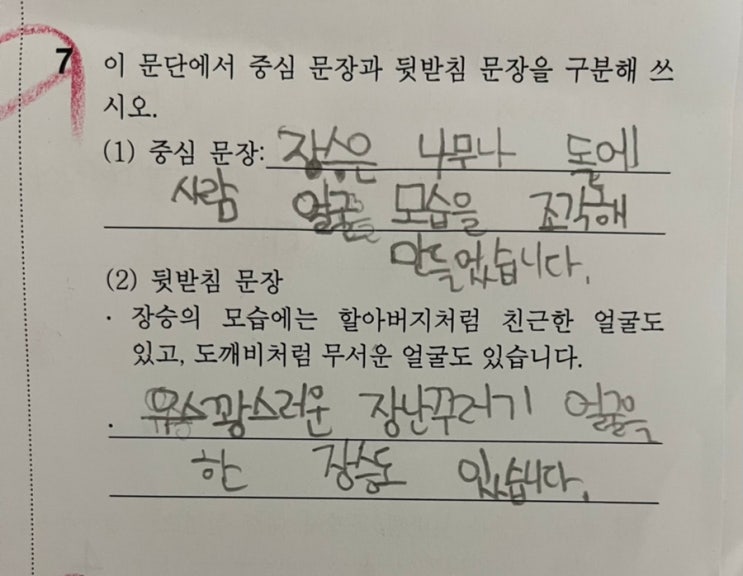 7 이 문단에서 중심 문장과 뒷받침 문장을 구분해 쓰
시오.
(1) 중심 문장: 장승은 나무나 돌에
사람 얼굴 모습을 조각해
만들었습니다.
(2) 뒷받침 문장
· 장승의 모습에는 할아버지처럼 친근한 얼굴도
있고, 도깨비처럼 무서운 얼굴도 있습니다.
· 우스꽝스러운 장난꾸러기 얼굴을
한 장승도 있습니다.